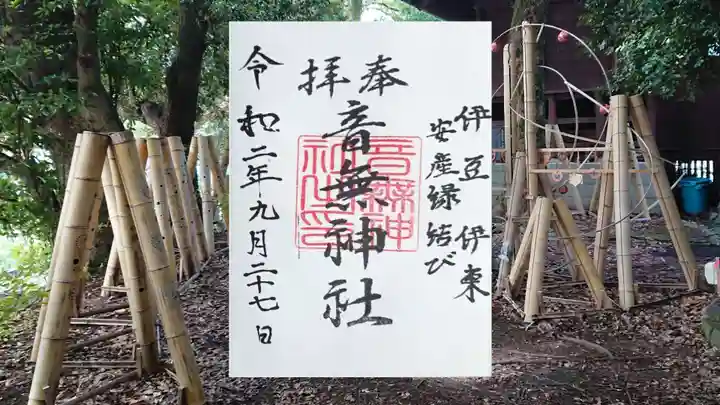 奉拝
伊豆伊東
安産縁結び
音無神社
音無神社之印
令和二年九月二十七日